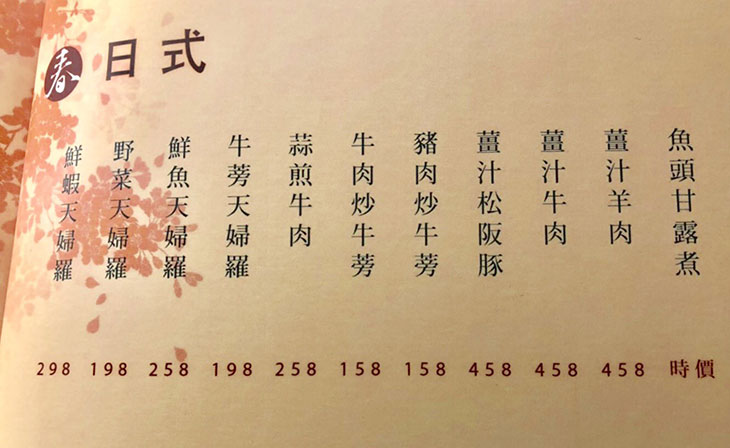 春 日式
魚頭甘露煮 時價
薑汁羊肉 458
薑汁牛肉 458
薑汁松阪豚 458
豬肉炒牛蒡 158
牛肉炒牛蒡 158
蒜煎牛肉 258
牛蒡天婦羅 198
鮮魚天婦羅 258
野菜天婦羅 198
鮮蝦天婦羅 298